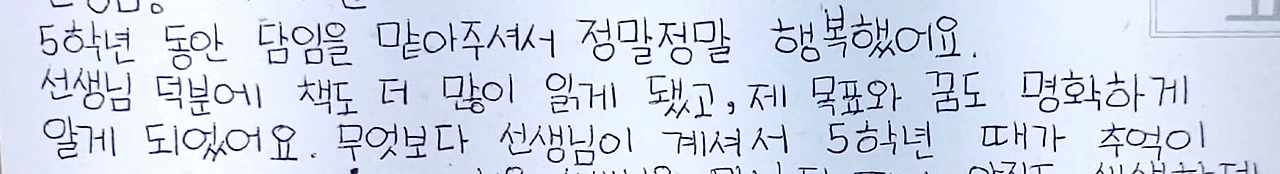 5학년 동안 담임을 맡아주셔서 정말정말 행복했어요.
선생님 덕분에 책도 더 많이 읽게 됐고, 제 목표와 꿈도 명확하게
알게 되었어요. 무엇보다 선생님이 계셔서 5학년 때가 추억이